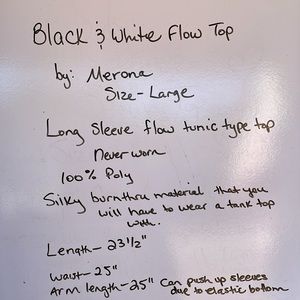 Black & White Flow Top
by: Merona
Size- Large
Long Sleeve flow tunic type top
Never worn
100% Poly
Silky burnthru material that you
will have to wear a tank top
with.
Length- 23 1/2"
Waist- 25"
Arm length- 25" Can push up sleeves
due to elastic bottom